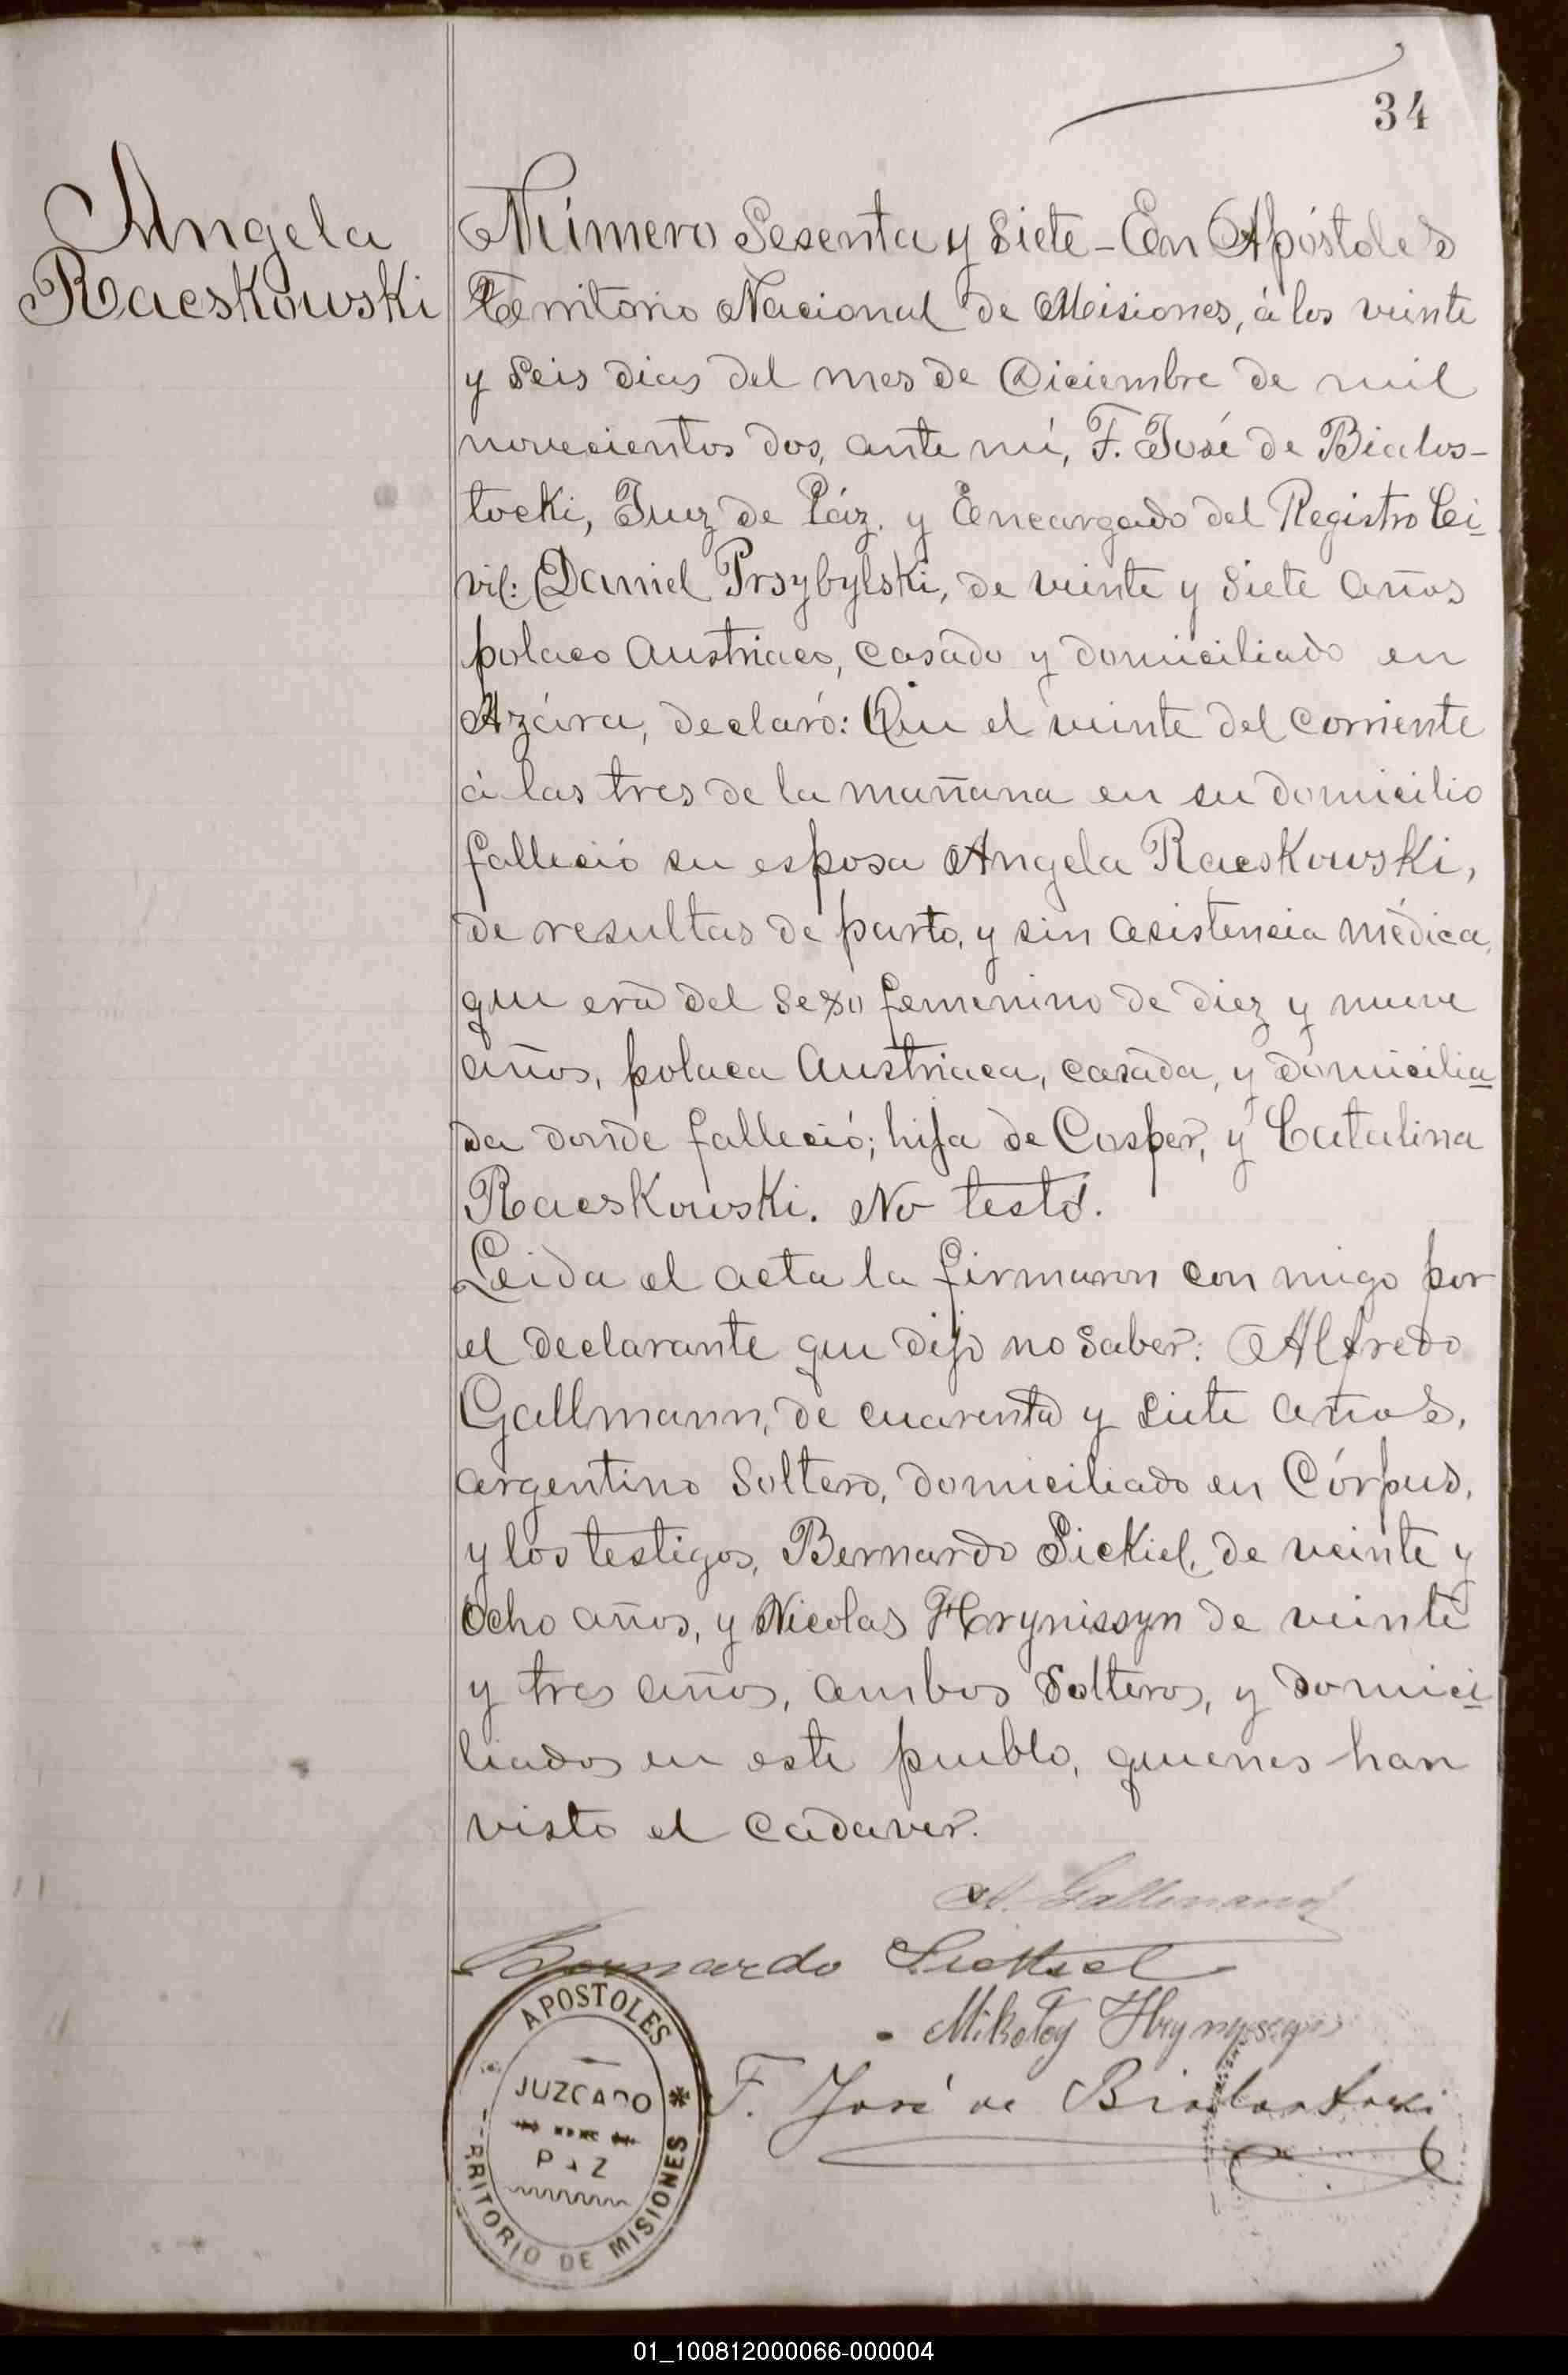 34
Angela
Racskowski
Número Sesenta y Siete - En Apóstoles
Territorio Nacional de Misiones, á los veinte
y seis dias del mes de Diciembre de mil
novecientos dos, ante mí, F. José de Bialos-
tocki, Juez de Páz, y Encargado del Registro Ci-
vil: Daniel Prsybylski, de veinte y siete años
polaco austriaco, casado y domiciliado en
Azára, declaró: Que el veinte del corriente
á las tres de la mañana en su domicilio
falleció su esposa Angela Racskowski,
de resultas de parto, y sin asistencia médica,
que era del sexo femenino de diez y nueve
años, polaca austriaca, casada, y domicilia-
da donde falleció; hija de Casper, y Catalina
Racskowski. No testó.
Leida el acta la firmaron con migo por
el declarante que dijo no saber: Alfredo
Gallmann, de cuarenta y siete años,
argentino soltero, domiciliado en Córpus,
y los testigos, Bernardo Sickiel, de veinte y
ocho años, y Nicolas Hrynissyn de veinte
y tres años, ambos solteros, y domici-
liados en este pueblo, quienes han
visto el cadaver.
A. Gallmann
Bernardo
Mikołay
F. José de Bialostocki
APOSTOLES
JUZGADO
PAZ
RRITORIO DE MISIONES *
01_100812000066-000004